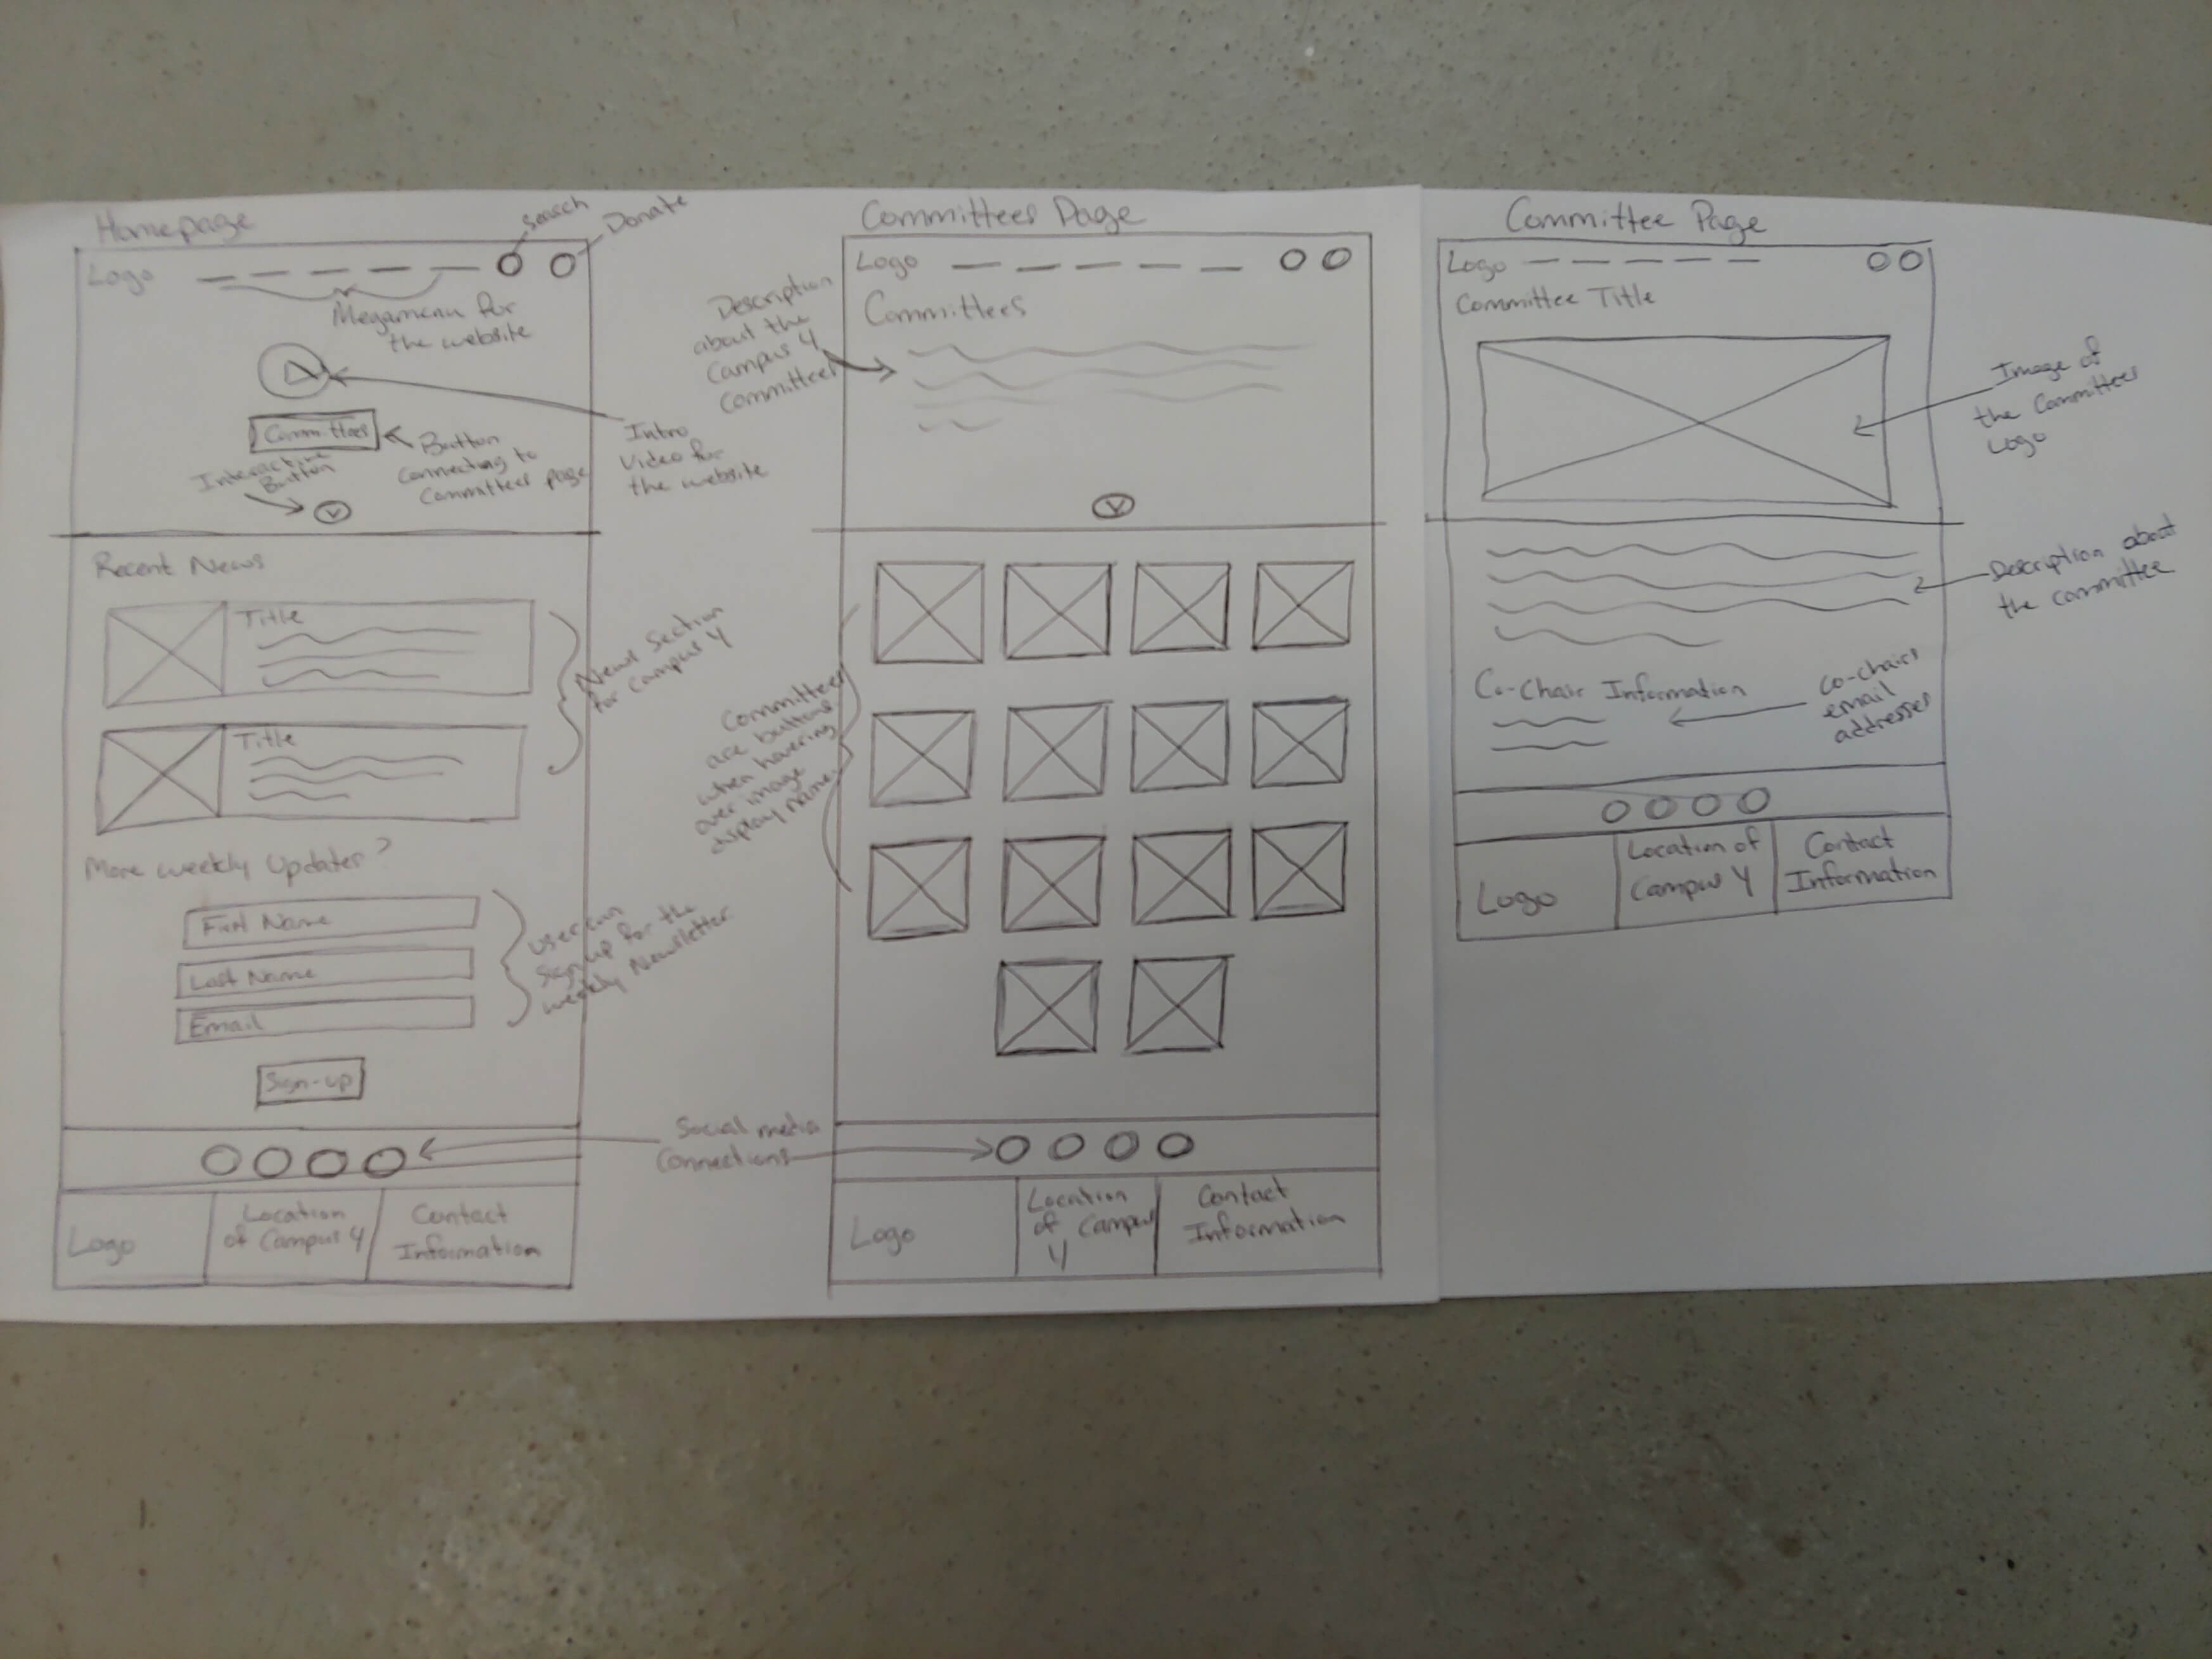 Homepage
search
Donate
Logo
Megamenu for
the website
Committees
Button
connecting to
Committees page
Interactive
Button
Intro
Video for
the website
Recent News
Title
Title
News Section
for Campus Y
More weekly Updates?
First Name
Last Name
Email
Sign-up
user can
Sign up for the
weekly Newsletter
Social media
Connections
Logo
Location
of Campus Y
Contact
Information
Committees Page
Logo
Committees
Description
about the
Campus Y
Committees
Committees
are buttons
when hovering
over image
display name.
Logo
Location
of Campus
Y
Contact
Information
Committee Page
Logo
Committee Title
Image of
the Committees
Logo
Description about
the committee
Co-Chair Information
Co-chairs
email
addresses
Logo
Location of
Campus Y
Contact
Information